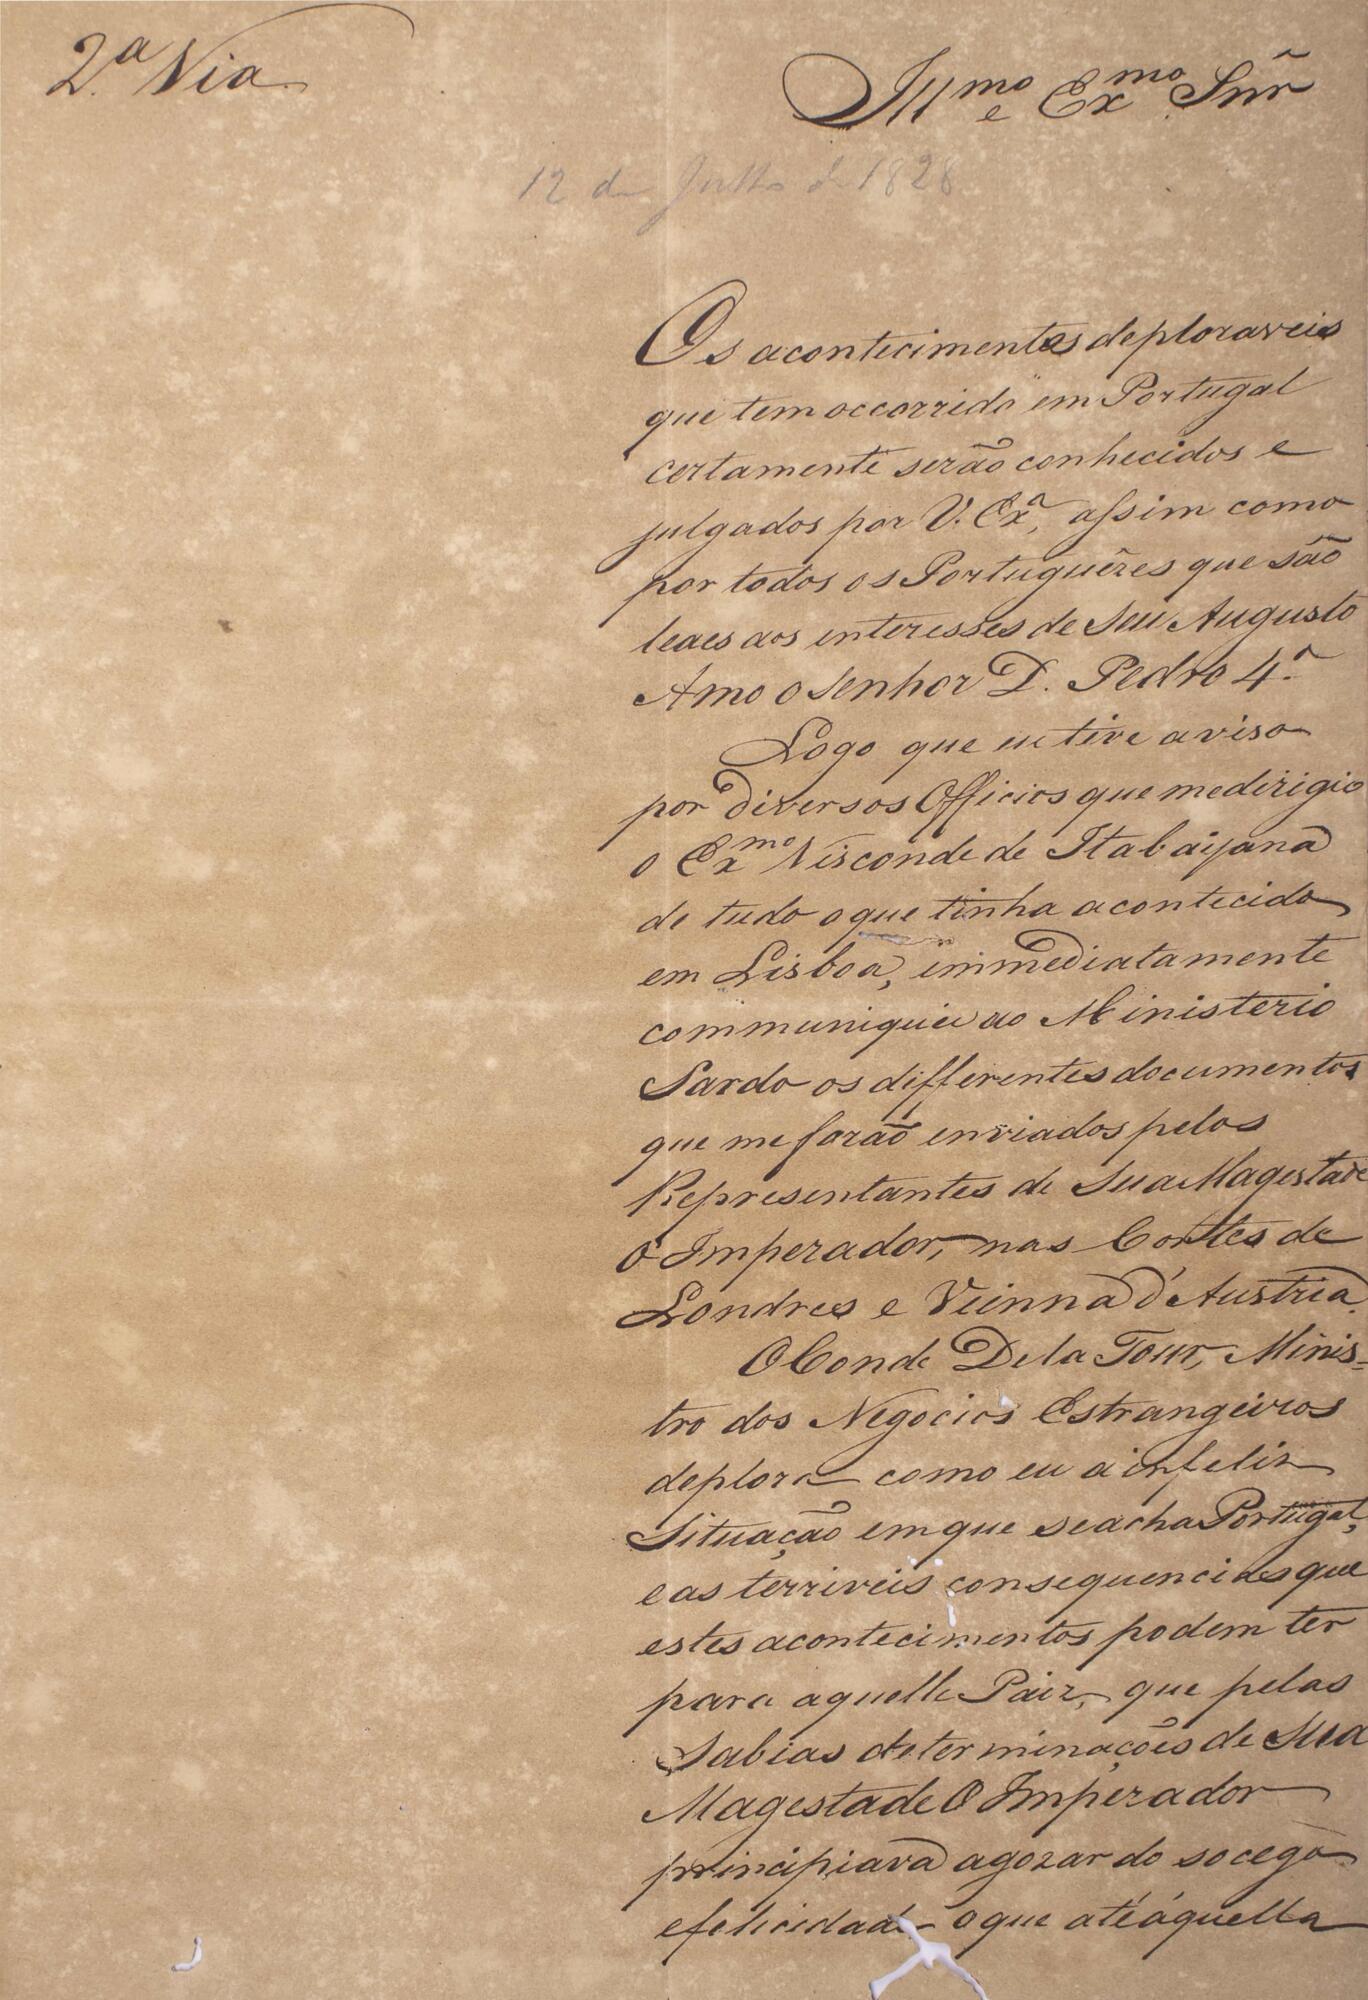 2.ª Via
Ill.mo e Ex.mo Snr̃
12 de Julho de 1828
Os acontecimentos deploraveis
que tem occorrido em Portugal
certamente serão conhecidos e
julgados por V. Ex.ª, assim como
por todos os Portuguêzes que são
leaes aos interesses de Seu Augusto
Amo o Senhor D. Pedro 4.º
Logo que eu tive aviso
por diversos Officios que me dirigio
o Ex.mo Visconde de Itabaiyana
de tudo o que tinha acontecido
em Lisboa, immediatamente
communiquei ao Ministerio
Sardo os differentes documentos
que me forão enviados pelos
Representantes de Sua Magestade
O Imperador, nas Cortes de
Londres e Veinna d'Austria.
O Conde De la Tour, Minis=
tro dos Negocios Estrangeiros
deplora como eu a infeliz
Situação em que se acha Portugal,
e as terriveis consequencias que
estes acontecimentos podem ter
para aquelle Paiz, que pelas
Sabias determinações de Sua
Magestade O Imperador
principiava a gozar do socego
e felicidade o que até áquella